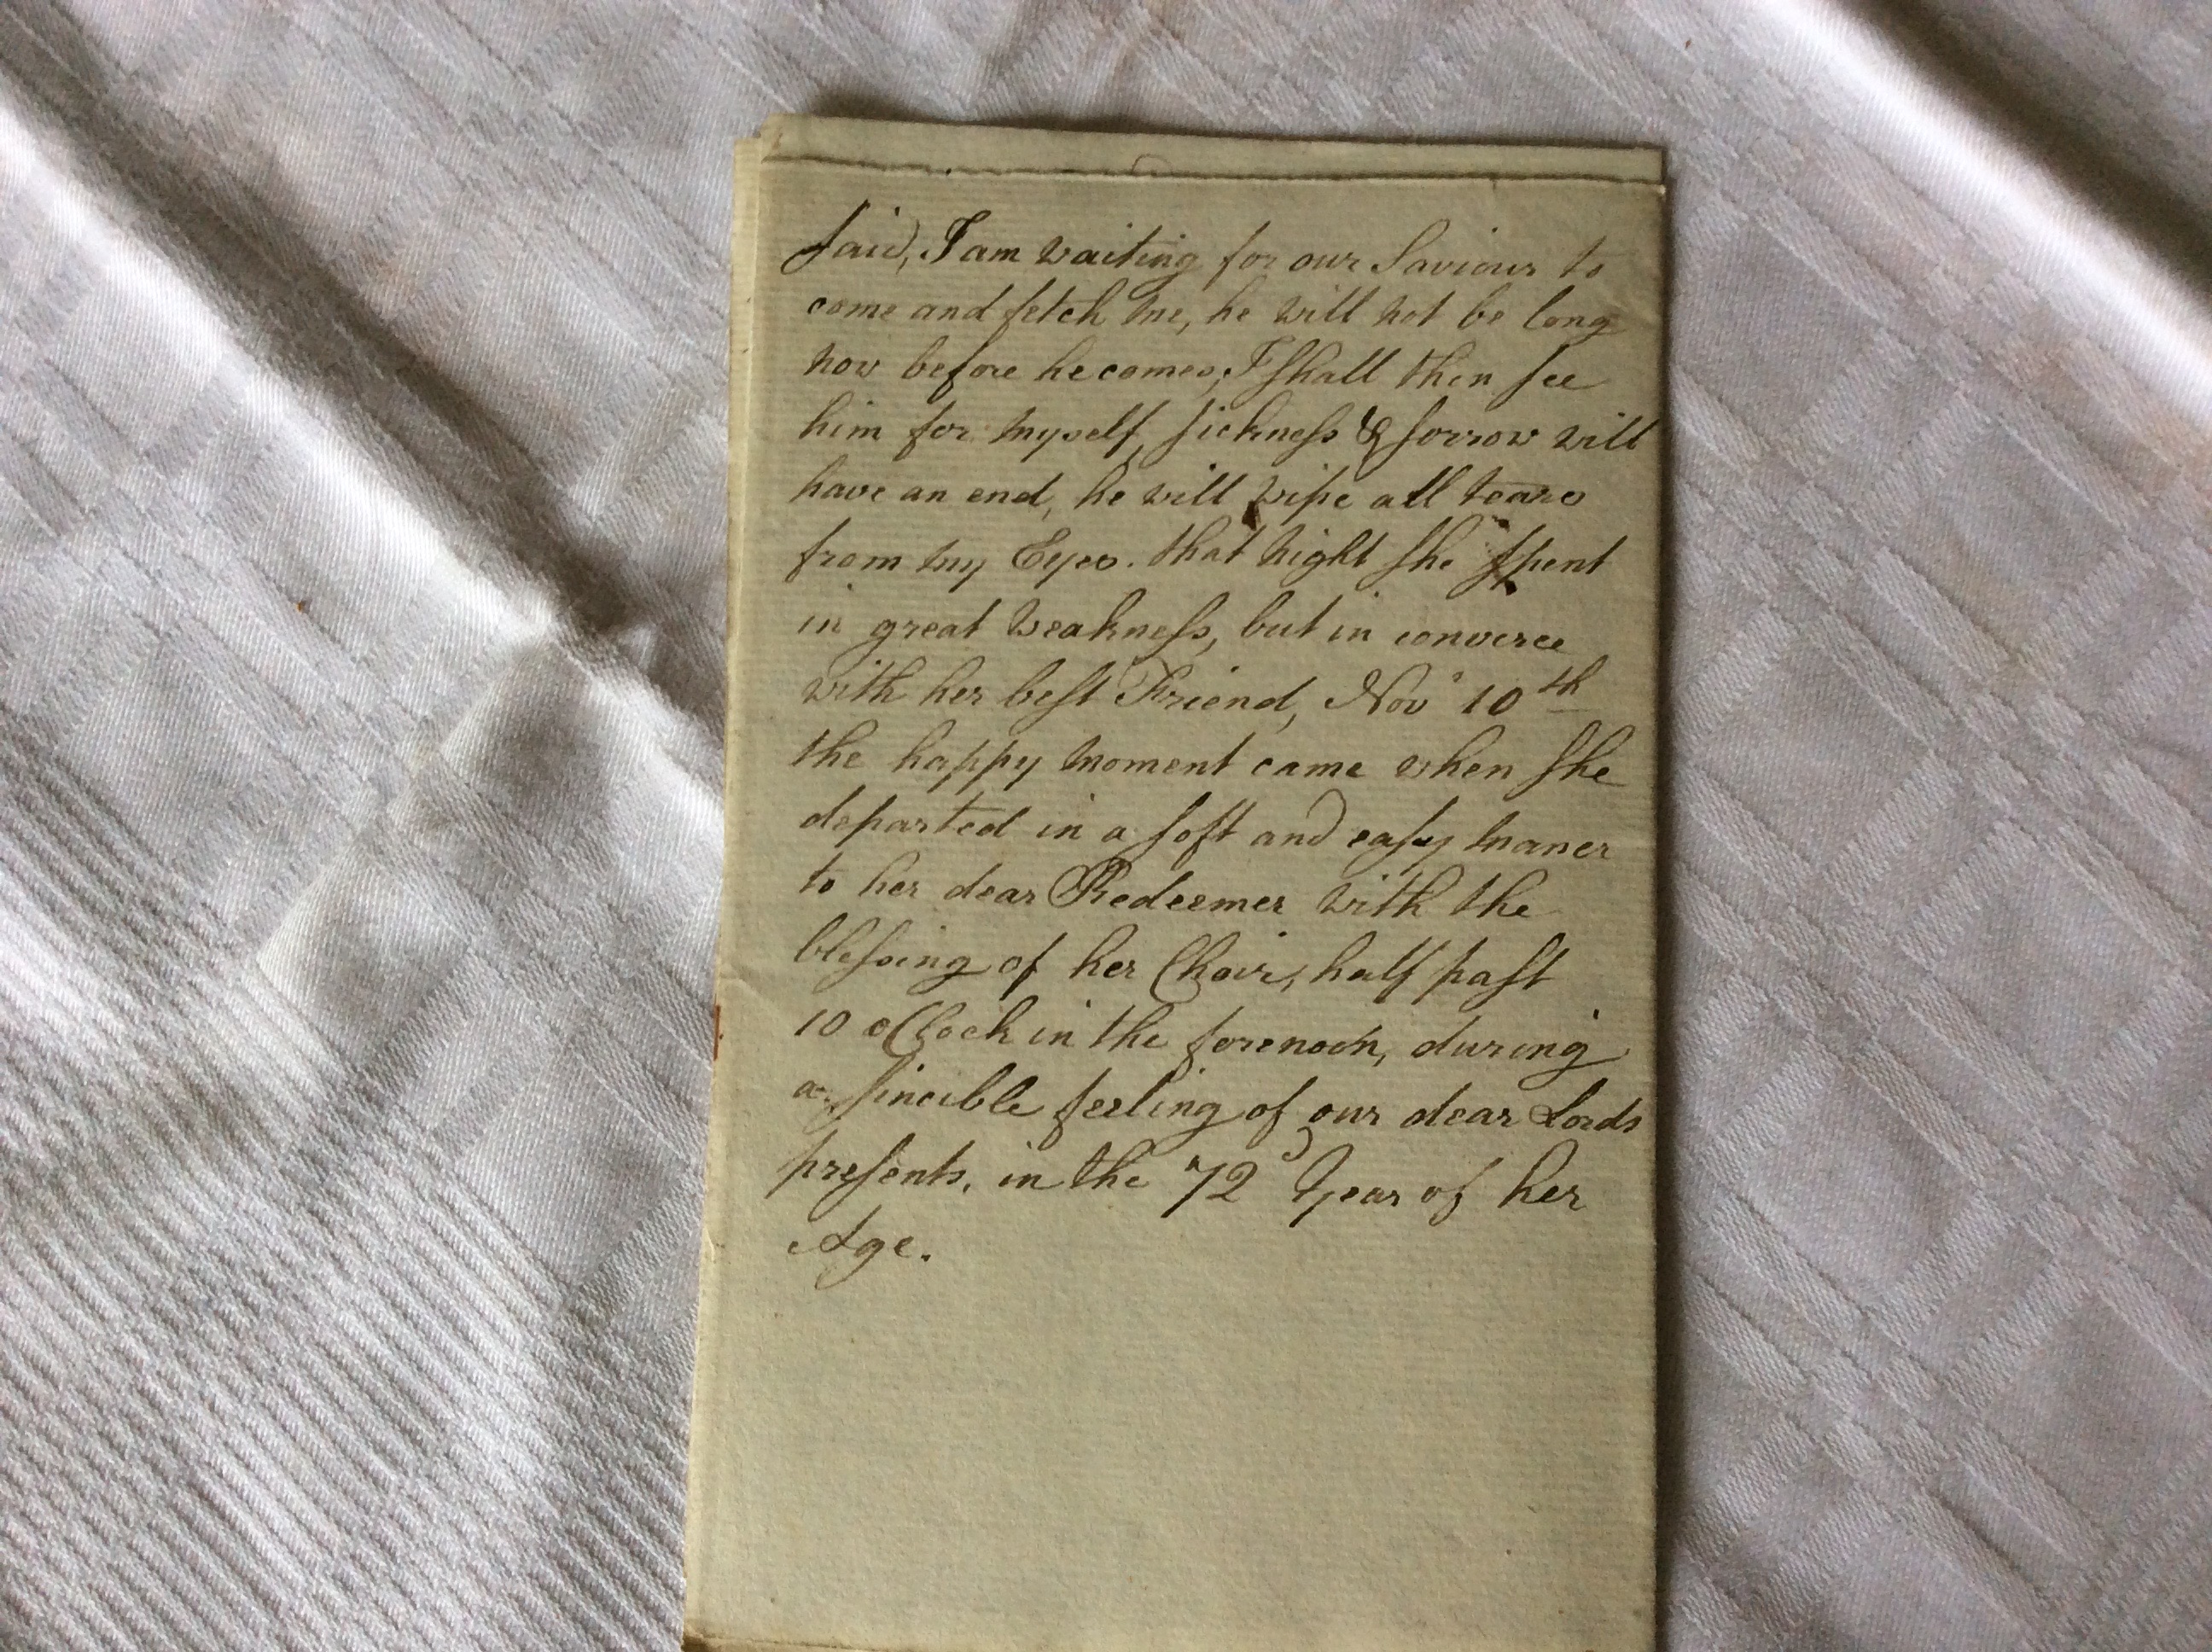 said, I am waiting for our Saviour to
come and fetch me, he will not be long
now before he comes; I shall then see
him for myself, sickness & sorrow will
have an end, he will wipe all tears
from my Eyes. that night she spent
in great weakness, but in converce
with her best Friend, Nov.r 10th
the happy moment came when she
departed in a soft and easy maner
to her dear Redeemer with the
blessing of her Choir, half past
10 oClock in the forenoon, during
a sincible feeling of our dear Lords
presents, in the 72d Year of her
Age.